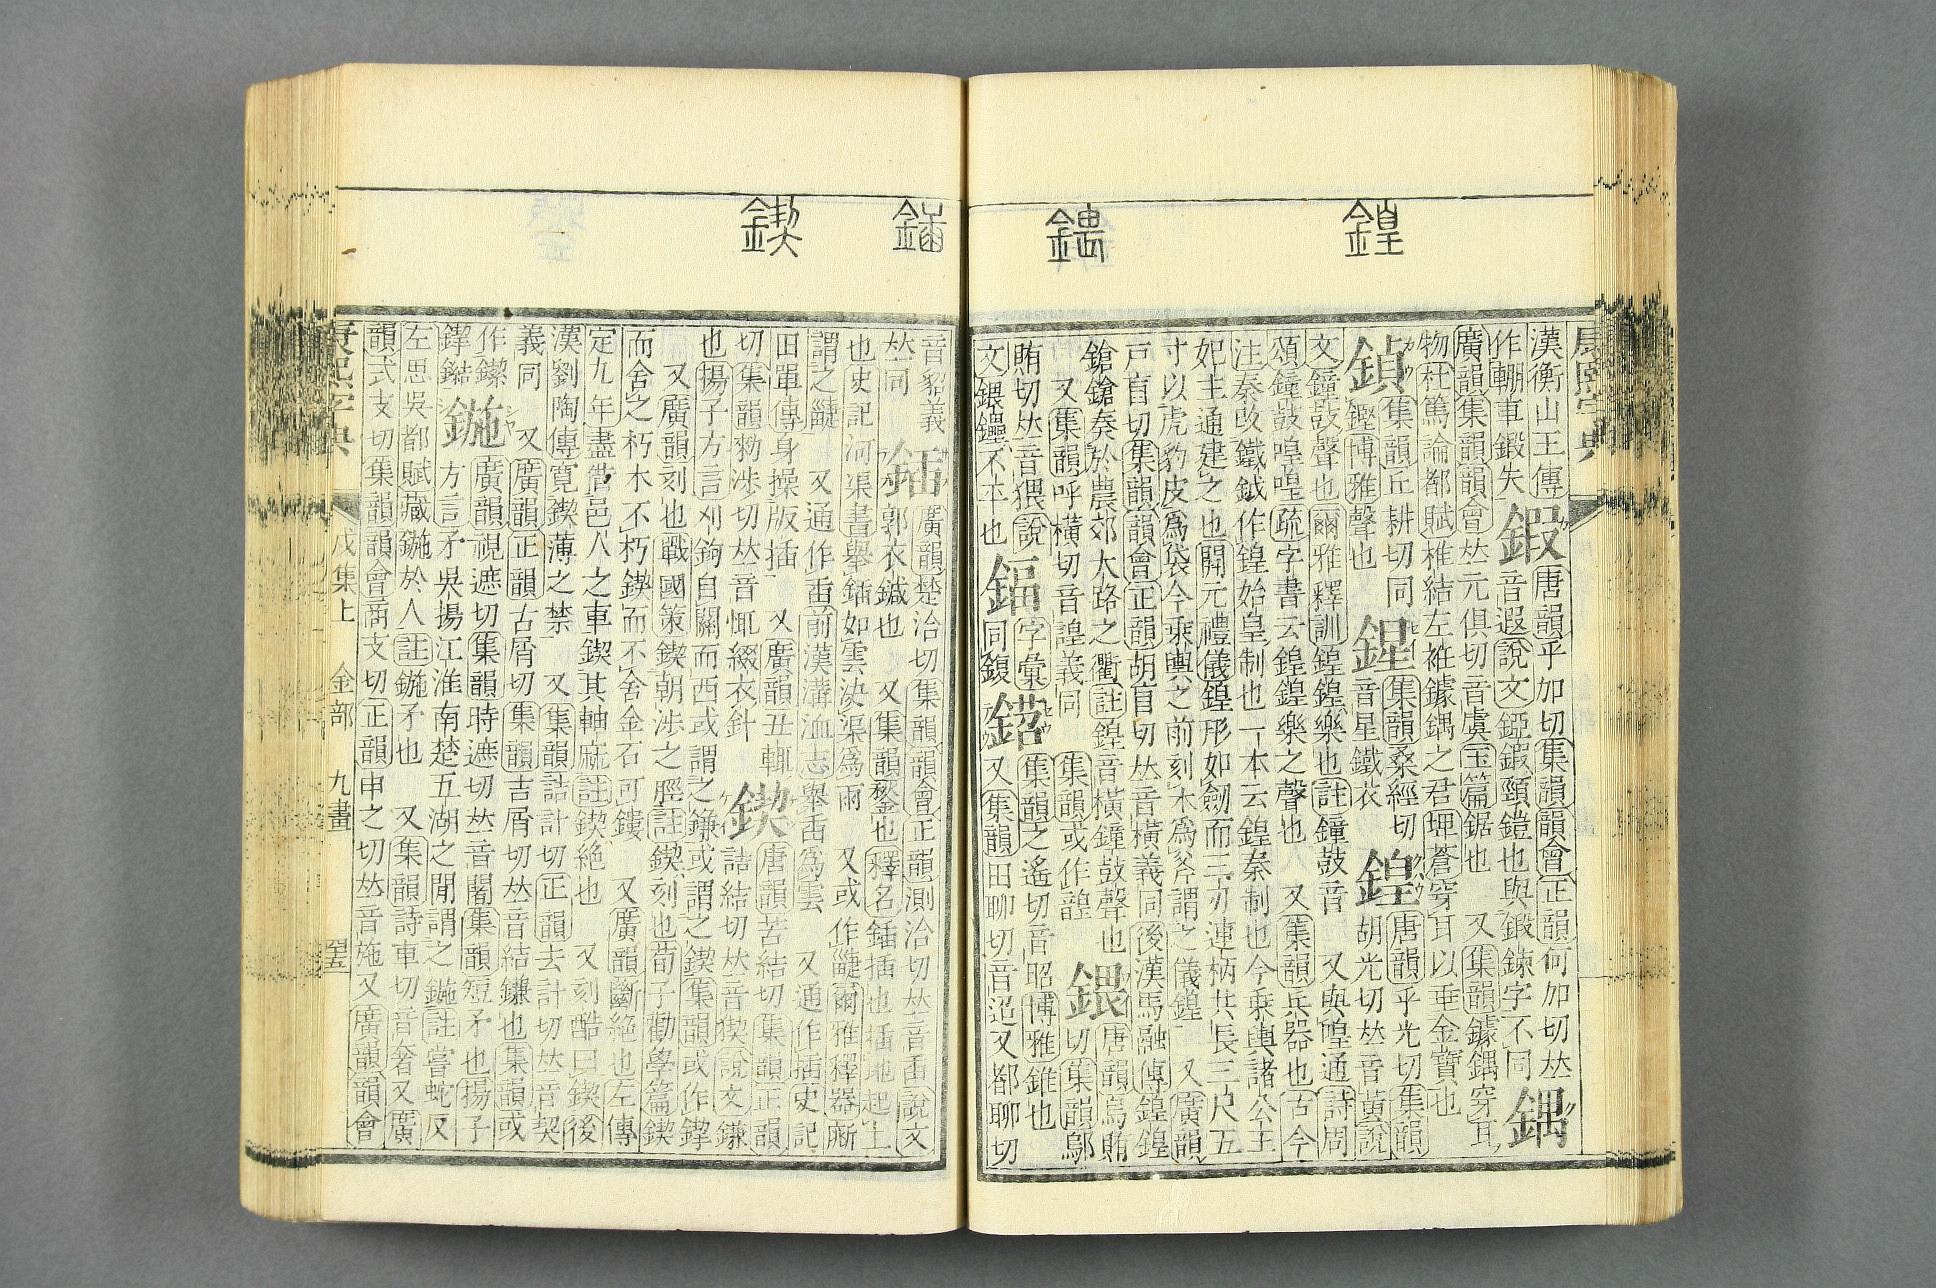 鍠
鍡
鍤
鍥
康熙字典
漢衡山王傳
作輣車鍛矢
鍜
唐韻乎加切集韻韻會正韻何加切𠀤
音遐說文錏鍜頸鎧也與鍛鍊字不同
鍝
廣韻集韻韻會𠀤元俱切音虞玉篇鋸也 又集韻鐻鍝穿耳
物杜篤論都賦椎結左衽鐻鍝之君埤蒼穿耳以垂金寶也
鍞
集韻丘耕切同
鏗博雅聲也
鍟
集韻桑經切
音星鐵衣
鍠
唐韻乎光切集韻
胡光切𠀤音黃說
文鐘鼓聲也爾雅釋訓鍠鍠樂也註鐘鼓音 又與喤通詩周
頌鐘鼓喤喤疏字書云鍠鍠樂之聲也 又集韻兵器也古今
注秦改鐵鉞作鍠始皇制也一本云鍠秦制也今乗輿諸公王
妃主通建之也開元禮儀鍠形如劒而三刃連柄共長三尺五
寸以虎豹皮爲袋今乘輿之前刻木爲斧謂之儀鍠 又廣韻
戸盲切集韻韻會正韻胡盲切𠀤音橫義同後漢馬融傳鍠鍠
鎗鎗奏於農郊大路之衢註鍠音橫鐘鼓聲也
又集韻呼橫切音諻義同 集韻或作韹
鍡
唐韻烏賄
切集韻鄔
賄切𠀤音猥說
文鍡鑸不平也
鍢
字彙
同鍑
鍣
集韻之遙切音昭博雅錐也
又集韻田聊切音迢又都聊切
音貂義
𠀤同
鍤
廣韻楚洽切集韻韻會正韻測洽切𠀤音臿說文
郭衣鍼也 又集韻也釋名鍤插也插地起土
也史記河渠書舉鍤如雲决渠爲雨 又或作疀爾雅釋器
謂之疀 又通作臿前漢溝洫志舉臿爲雲 又通作插史記
田單傳身操版插 又廣韻丑輒
切集韻勑涉切𠀤音綴衣針
鍥
唐韻苦結切集韻正韻
詰結切𠀤音猰說文鎌
也揚子方言刈鉤自關而西或謂之鎌或謂之鍥集韻或作鐣
又廣韻刻也戰國策鍥朝涉之脛註鍥刻也荀子勸學篇鍥
而舍之朽木不朽鍥而不舍金石可鏤 又廣韻斷絕也左傳
定九年盡借邑人之車鍥其軸麻註鍥絕也 又刻酷曰鍥後
漢劉陶傳寬鍥薄之禁 又集韻詰計切正韻去計切𠀤音契
義同 又廣韻正韻古屑切集韻吉屑切𠀤音結鎌也集韻或
作鐭
鍦
廣韻視遮切集韻時遮切𠀤音闍集韻短矛也揚子
方言矛吳揚江淮南楚五湖之閒謂之鍦註嘗蛇反
左思吳都賦藏鍦於人註鍦矛也 又集韻詩車切音奢又廣
韻式支切集韻韻會商支切正韻申之切𠀤音施又廣韻韻會
康熙字典
戌集上 金部 九畫